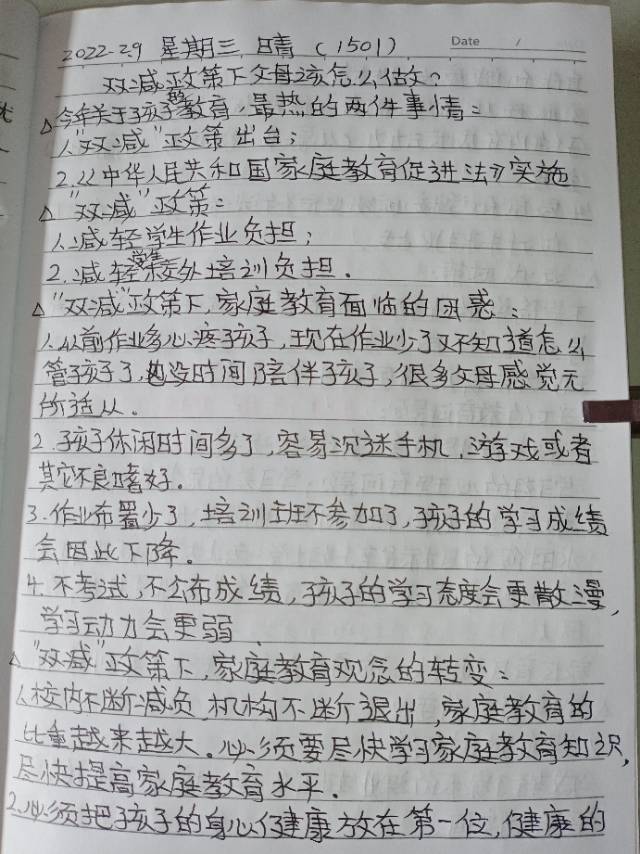 2022-2.9 星期三 晴 (1501)
Date /
双减政策下父母该怎么做?
△今年关于孩子教育,最热的两件事情:
1."双减"政策出台;
2.《中华人民共和国家庭教育促进法》实施
△"双减"政策:
1.减轻学生作业负担;
2.减轻学生校外培训负担.
△"双减"政策下,家庭教育面临的困惑:
1.从前作业多心疼孩子,现在作业少了又不知道怎么
管孩子了,也没时间陪伴孩子,很多父母感觉无
所适从.
2.孩子休闲时间多了,容易沉迷手机,游戏或者
其它不良嗜好.
3.作业布置少了,培训班不参加了,孩子的学习成绩
会因此下降.
4.不考试,不公布成绩,孩子的学习态度会更散漫,
学习动力会更弱.
△"双减"政策下,家庭教育观念的转变:
1.校内不断减负,机构不断退出,家庭教育的
比重越来越大.必须要尽快学习家庭教育知识,
尽快提高家庭教育水平.
2.必须把孩子的身心健康放在第一位,健康的